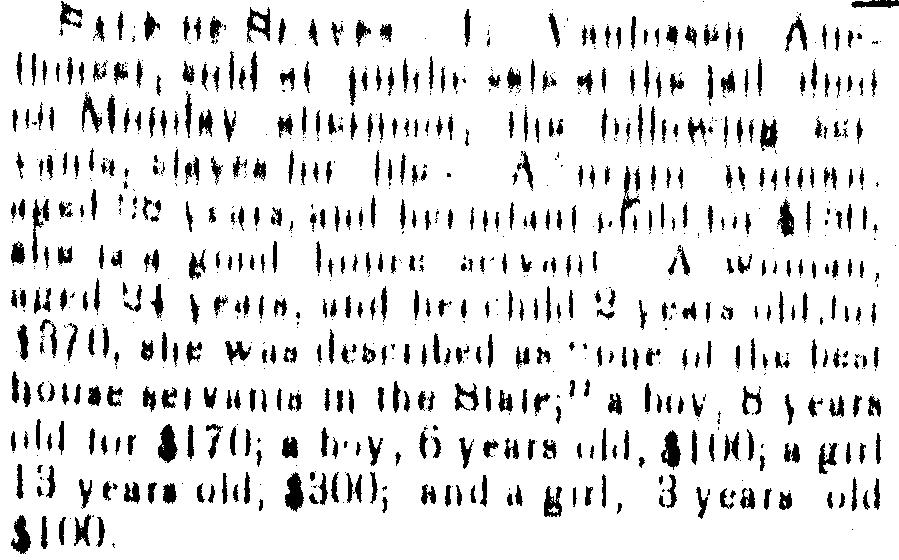 SALE OF SLAVES. L. Vandusen, Auc-
tioneer, sold at public sale at the jail door
on Monday afternoon, the following ser
vants, slaves for life. A negro woman,
aged years, and her infant child, for
she is a good house servant A woman,
aged 24 years, and her child 2 years old, for
$370, she was described as "one of the best
house servants in the State;" a boy, 8 years
old for $170; a boy, 6 years old, $100; a girl
13 years old, $300; and a girl, 3 years old
$100.